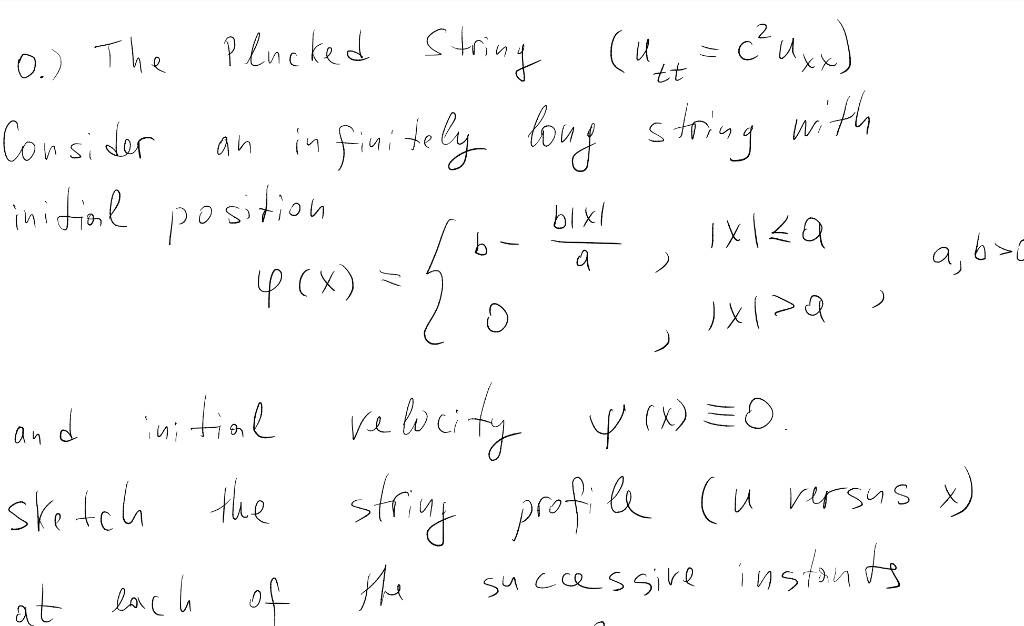 0.) The Plucked String (u_tt = c²u_xx)
Consider an infinitely long string with
initial position
φ(x) = { b - b|x|/a , |x| ≤ a
0 , |x| > a , a, b > 0
and initial velocity ψ(x) ≡ 0.
sketch the string profile (u versus x)
at each of the successive instants